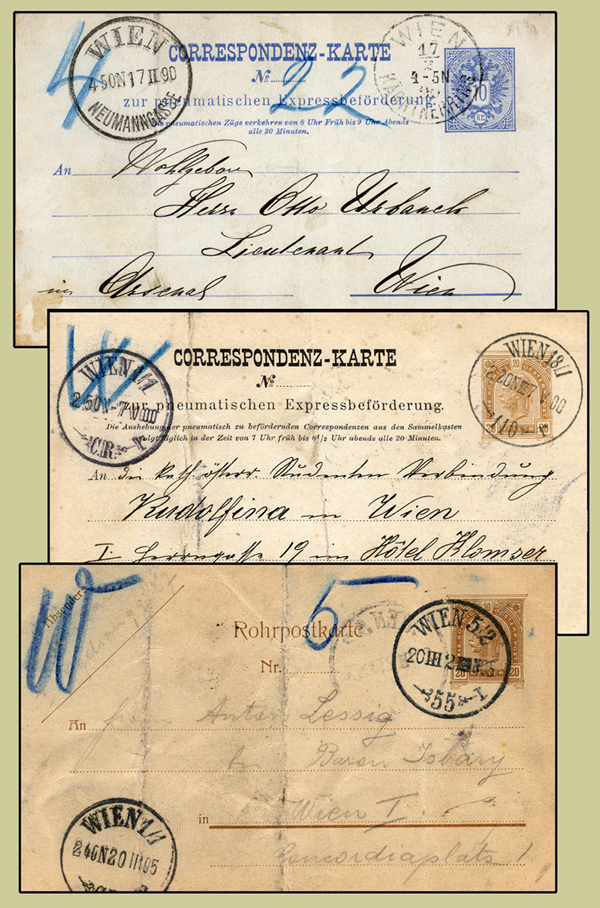 WIEN
4·50N 17 II 90
NEUMANNGASSE
CORRESPONDENZ-KARTE
WIEN
17
4-5N
KÄRNTNERRING
10
kr.
№ 22
zur pneumatischen Expressbeförderung.
Die pneumatischen Züge verkehren von 8 Uhr Früh bis 9 Uhr Abends
alle 20 Minuten.
An Wohlgeboren
Herrn Otto Urbanek
Lieutenant
im Arsenal Wien
WIEN 1/1
2·50N-7 VIII 00
CORRESPONDENZ-KARTE
WIEN 18/1
2·20N 7 00
110
20
№
zur pneumatischen Expressbeförderung.
Die Aushebung der pneumatisch zu befördernden Correspondenzen aus den Sammelkasten
erfolgt täglich in der Zeit von 7 Uhr früh bis 8½ Uhr abends alle 20 Minuten.
An die kath. österr. Studenten Verbindung
Rudolfina in Wien
I Herrngasse 19 im Hôtel Klomser
W 5
Absender:
Rohrpostkarte
WIEN 5/2
20 III
55 I
20 20
Nr.
An
Anton Lessig
bei Baron Tobary
in Wien I.
Concordiaplatz 1
WIEN 1/1
2 40N 20 III 05